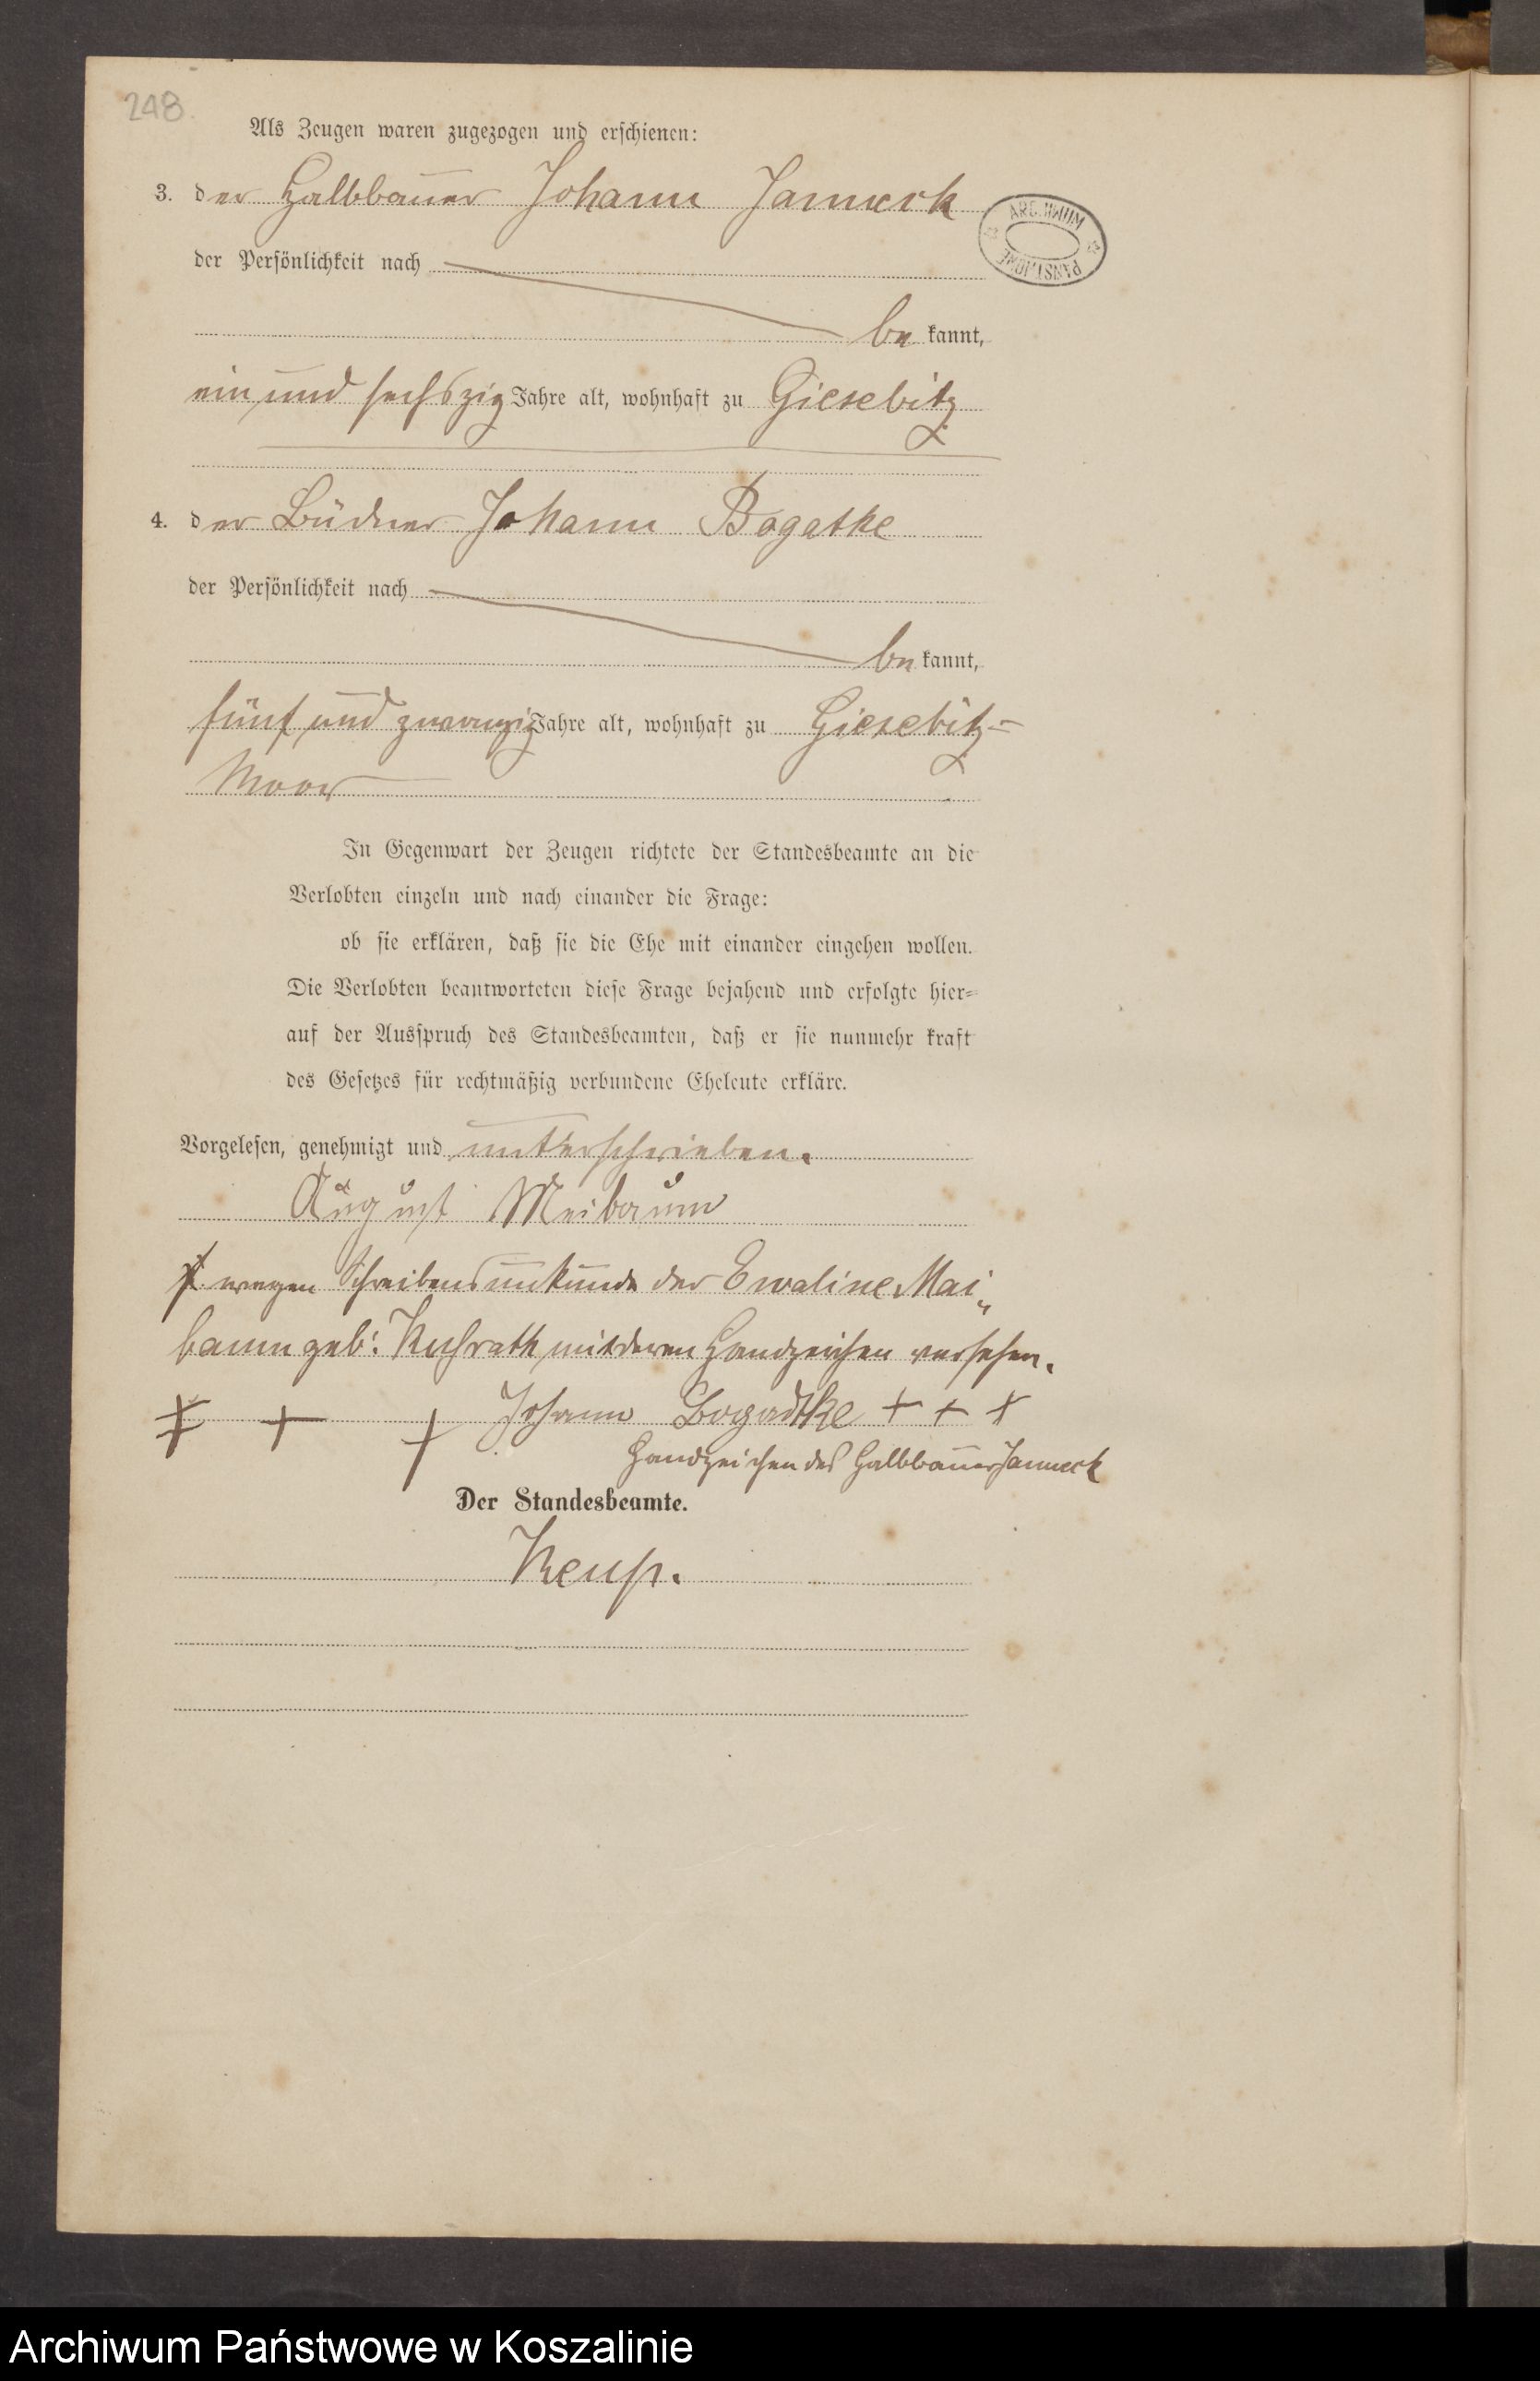 248.
Als Zeugen waren zugezogen und erschienen:
3. der Halbbauer Johann Janneck
ARCHIWUM PAŃSTWOWE
der Persönlichkeit nach
be kannt,
ein und sechszig Jahre alt, wohnhaft zu Giesebitz
4. der Büdner Johann Bogatke
der Persönlichkeit nach
be kannt,
fünf und zwanzig Jahre alt, wohnhaft zu Giesebitz-
Moor
In Gegenwart der Zeugen richtete der Standesbeamte an die
Verlobten einzeln und nach einander die Frage:
ob sie erklären, daß sie die Ehe mit einander eingehen wollen.
Die Verlobten beantworteten diese Frage bejahend und erfolgte hier=
auf der Ausspruch des Standesbeamten, daß er sie nunmehr kraft
des Gesetzes für rechtmäßig verbundene Eheleute erkläre.
Vorgelesen, genehmigt und unterschrieben.
August Meibaum
wegen Schreibensunkunde der Ewaline Mai„
baum geb: mit deren Handzeichen versehen.
+ + + Johann Bogadtke + + +
Handzeichen des Halbbauer Janneck
Der Standesbeamte.
Archiwum Państwowe w Koszalinie